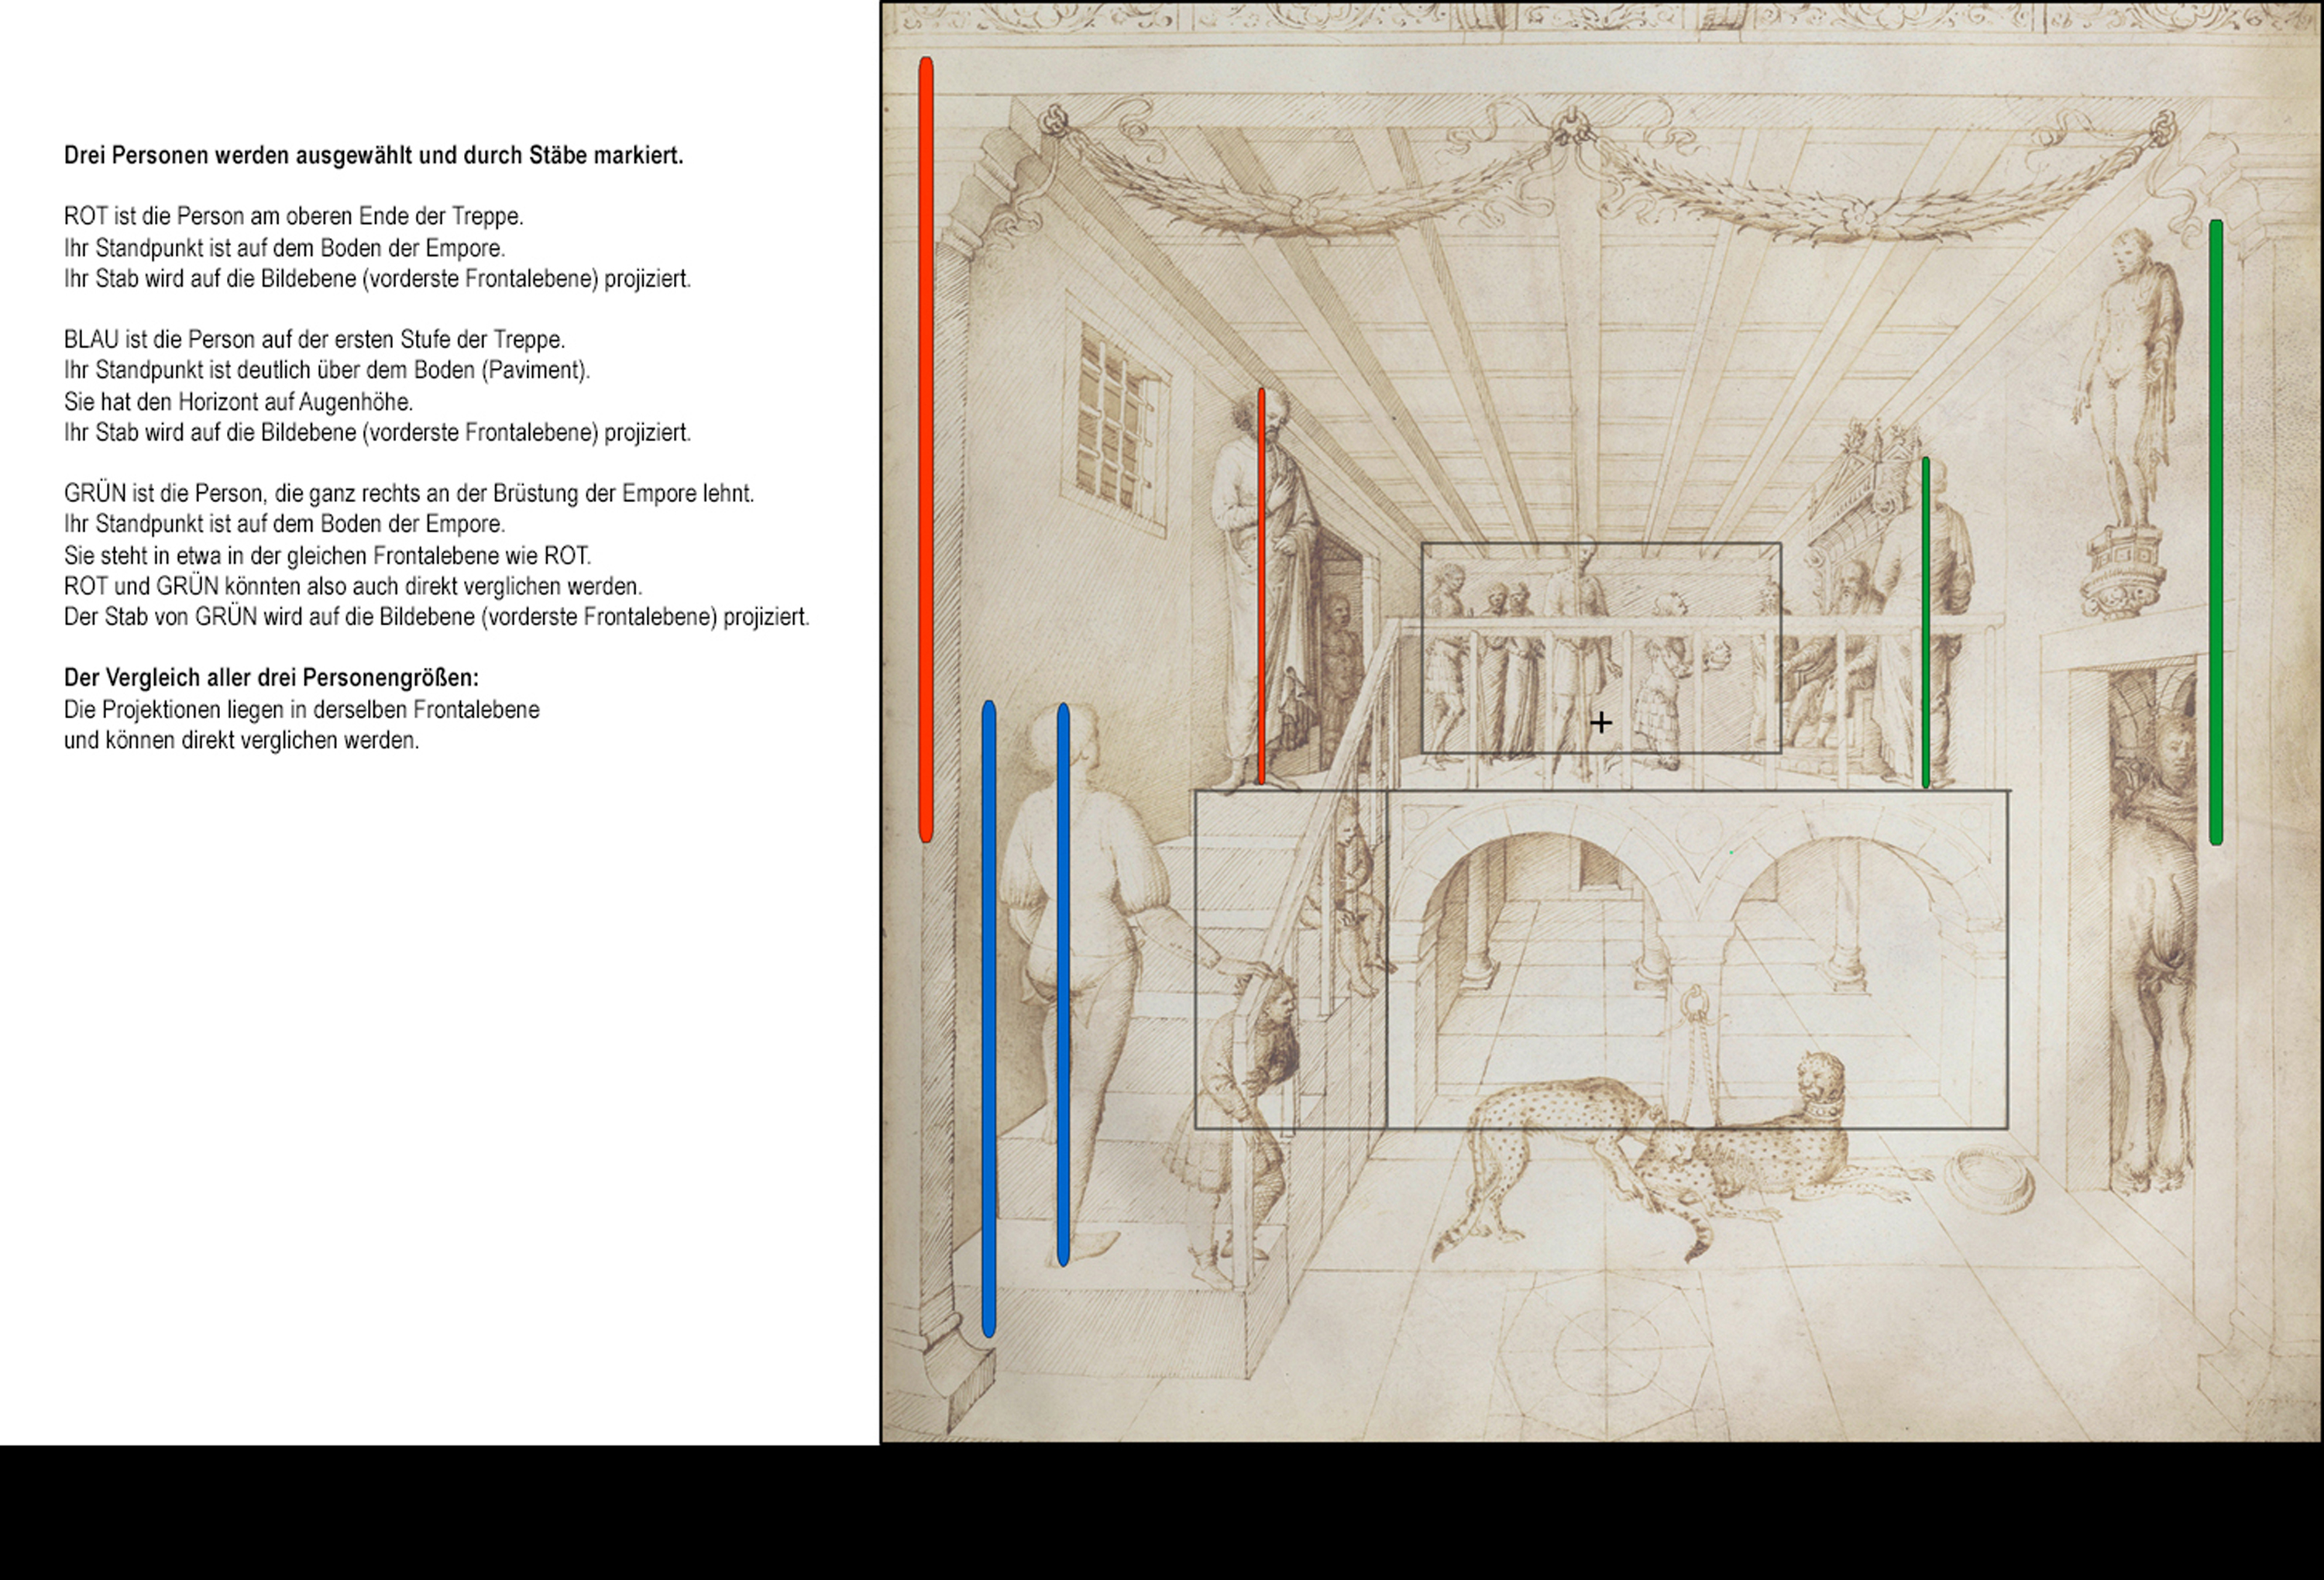 Drei Personen werden ausgewählt und durch Stäbe markiert.
ROT ist die Person am oberen Ende der Treppe.
Ihr Standpunkt ist auf dem Boden der Empore.
Ihr Stab wird auf die Bildebene (vorderste Frontalebene) projiziert.
BLAU ist die Person auf der ersten Stufe der Treppe.
Ihr Standpunkt ist deutlich über dem Boden (Paviment).
Sie hat den Horizont auf Augenhöhe.
Ihr Stab wird auf die Bildebene (vorderste Frontalebene) projiziert.
GRÜN ist die Person, die ganz rechts an der Brüstung der Empore lehnt.
Ihr Standpunkt ist auf dem Boden der Empore.
Sie steht in etwa in der gleichen Frontalebene wie ROT.
ROT und GRÜN könnten also auch direkt verglichen werden.
Der Stab von GRÜN wird auf die Bildebene (vorderste Frontalebene) projiziert.
Der Vergleich aller drei Personengrößen:
Die Projektionen liegen in derselben Frontalebene
und können direkt verglichen werden.